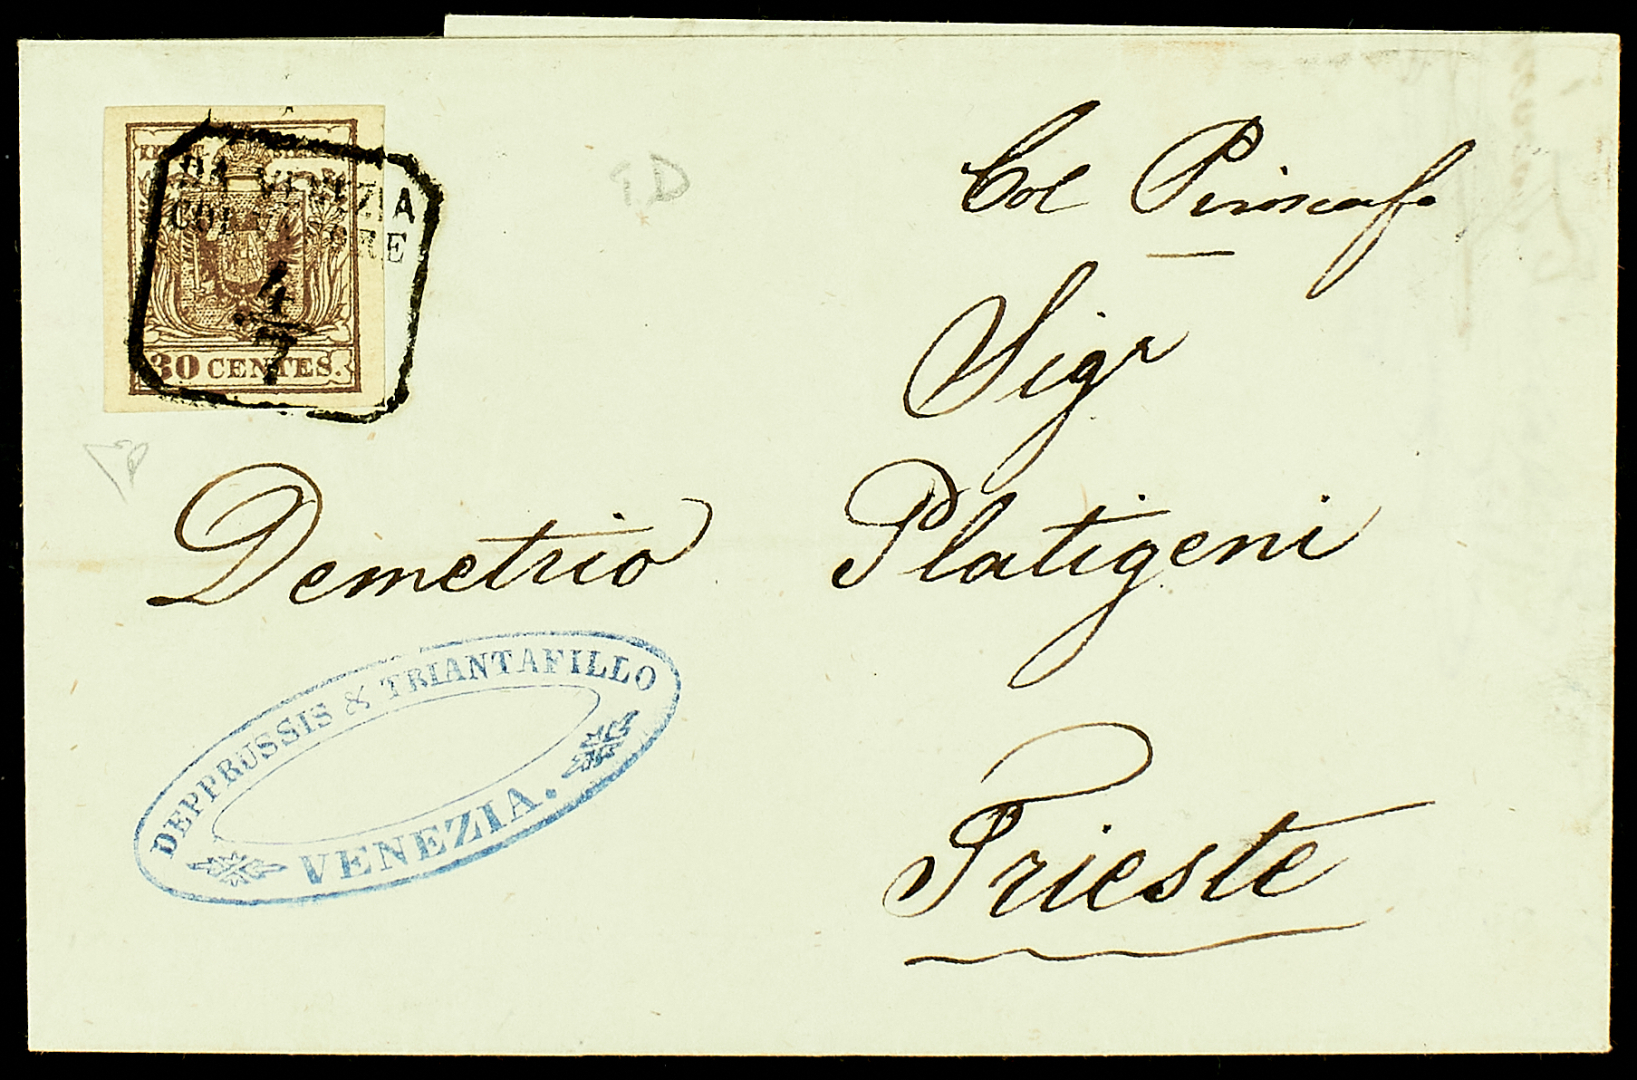 KKPOST-STEMPEL
DA VENEZIA
COL VAPORE
4
7
30 CENTES.
Col Piroscafo
Sigr
Demetrio Platigeni
Trieste
DEPPRUSSIS & TRIANTAFILLO
VENEZIA.